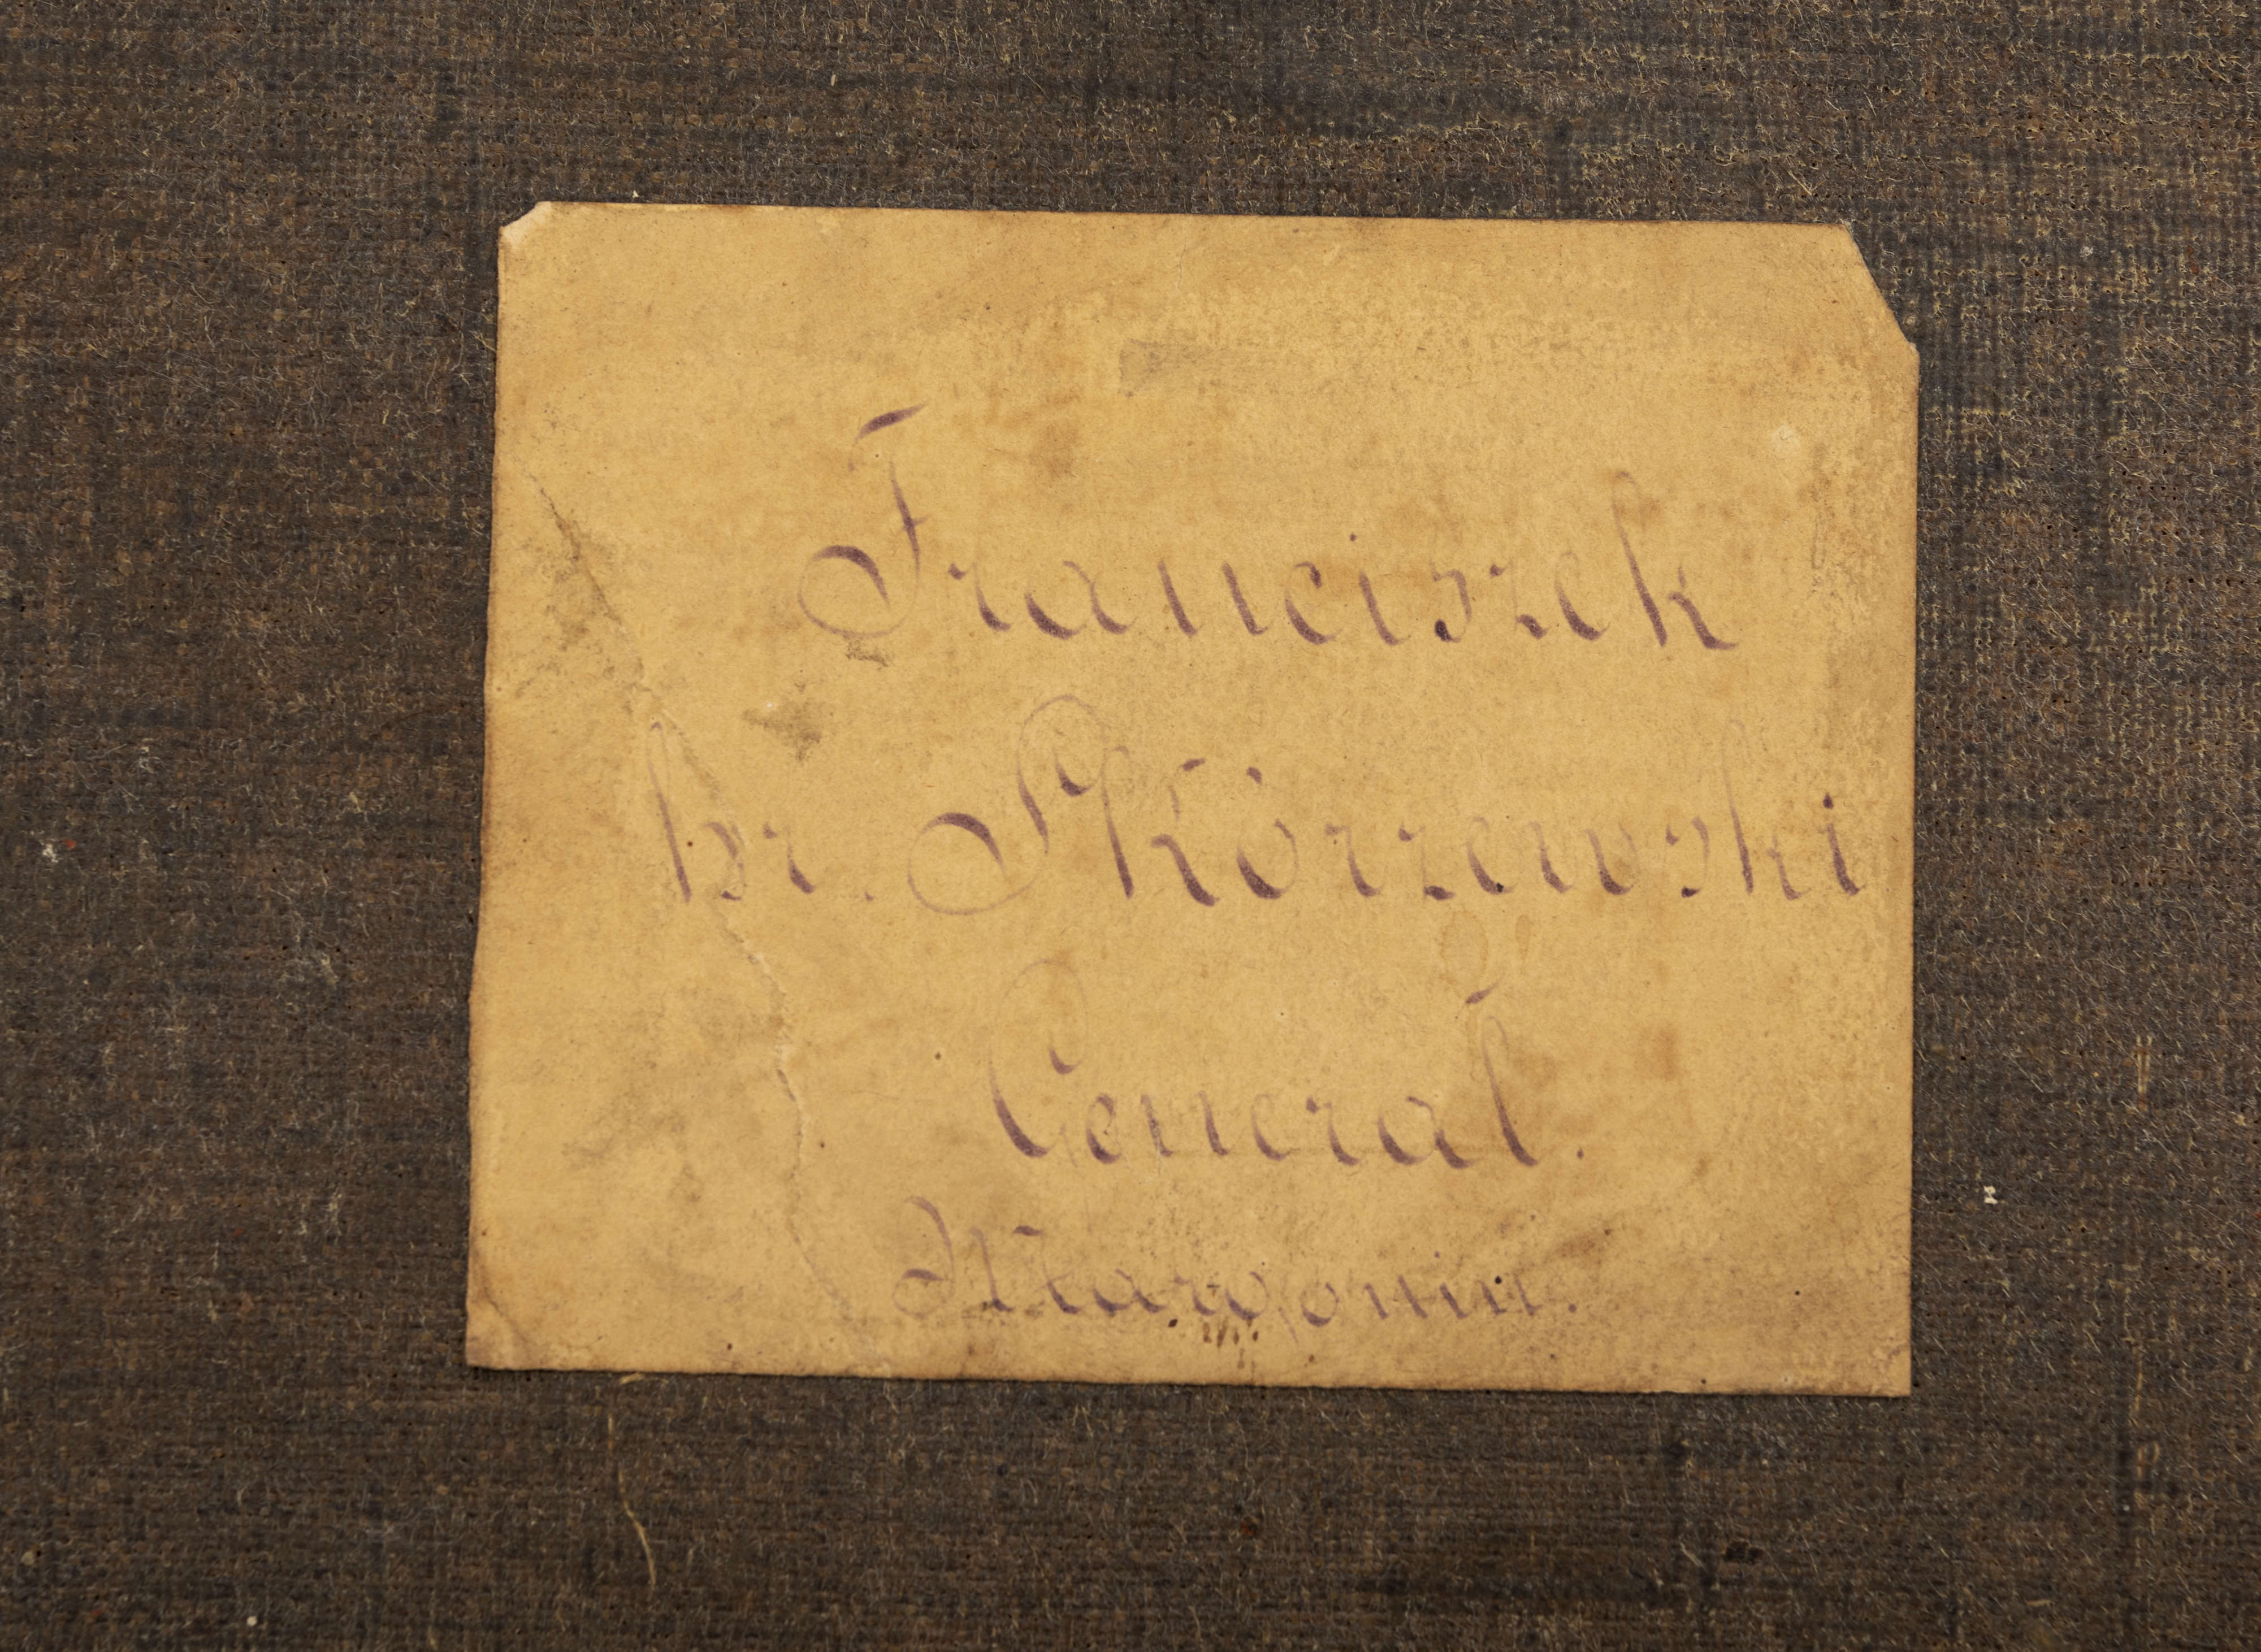 Franciszek
hr. Skórzewski
Generał.
Margonin.